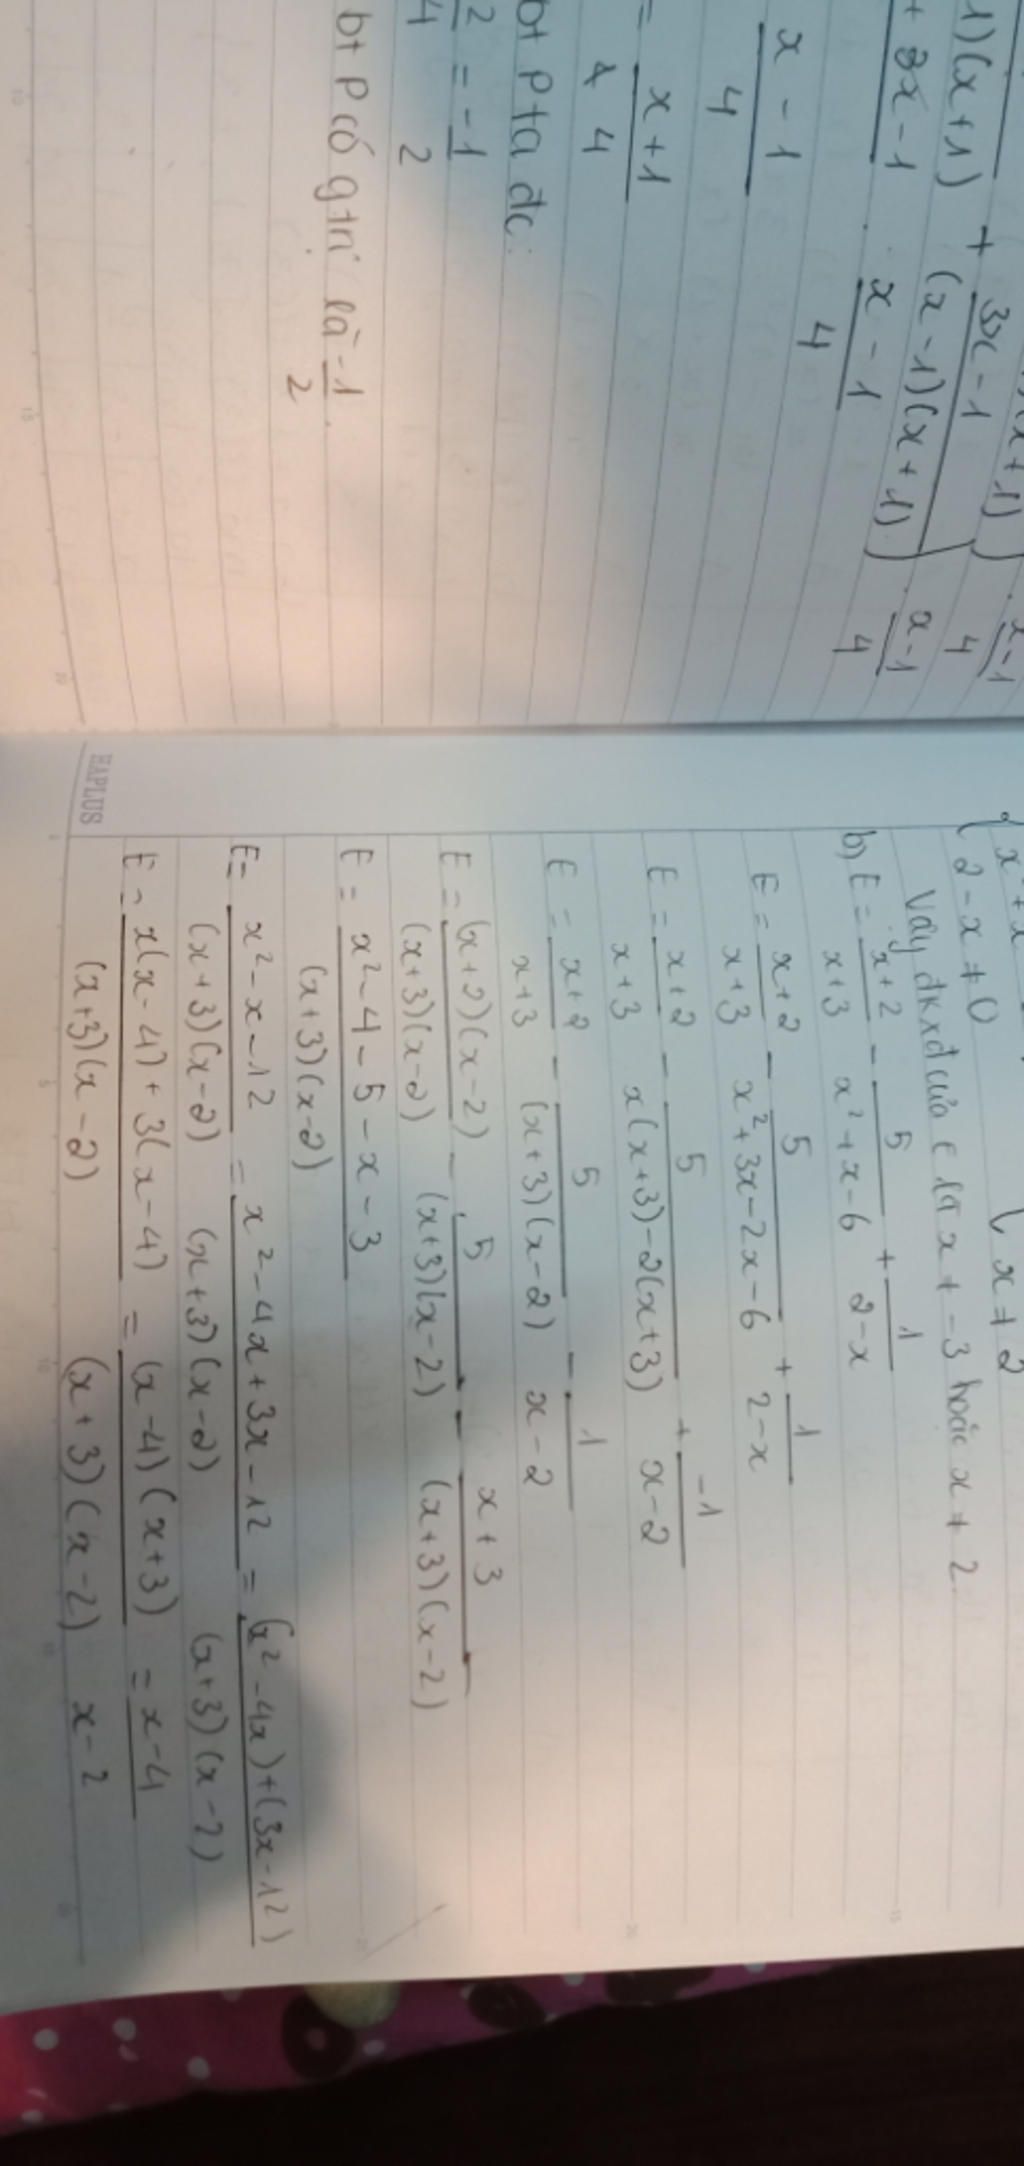 1)(x+1) + 3x-1
(x-1)(x+1)
x-1
4
+ 3x-1
x-1
4
x-1
4
x-1
4
= x+1
4
bt P ta đc:
2 = -1
4 2
bt P có gtrị là -1
2
2-x ≠ 0
x ≠ 2
Vậy đkxđ của E là x ≠ -3 hoặc x ≠ 2
b) E = x+2 - 5 + 1
x+3 x²+x-6 2-x
E = x+2 - 5 + 1
x+3 x²+3x-2x-6 2-x
E = x+2 - 5 + -1
x+3 x(x+3)-2(x+3) x-2
E = x+2 - 5 - 1
x+3 (x+3)(x-2) x-2
E = (x+2)(x-2) - 5 - x+3
(x+3)(x-2) (x+3)(x-2) (x+3)(x-2)
E = x²-4-5-x-3
(x+3)(x-2)
E= x²-x-12 = x²-4x+3x-12 = (x²-4x)+(3x-12)
(x+3)(x-2) (x+3)(x-2) (x+3)(x-2)
E = x(x-4)+3(x-4) = (x-4)(x+3) = x-4
(x+3)(x-2) (x+3)(x-2) x-2
HAPLUS